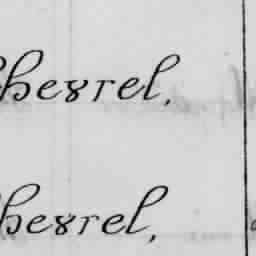 hevrel,
hevrel,